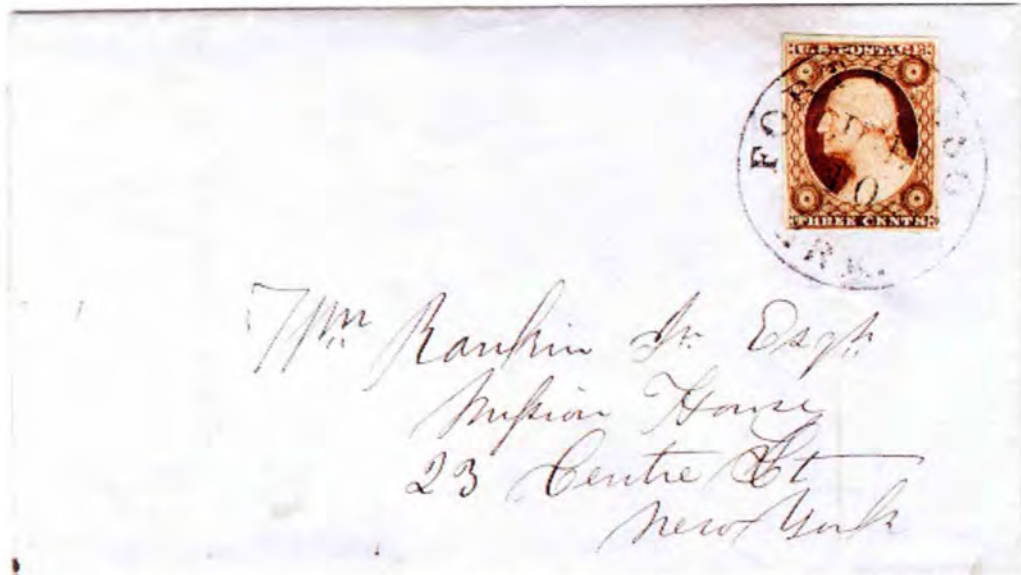 U.S. POSTAGE
THREE CENTS
FOR
ARK.
Wm Rankin Jr. Esqr.
Mission House
23 Centre St
New York